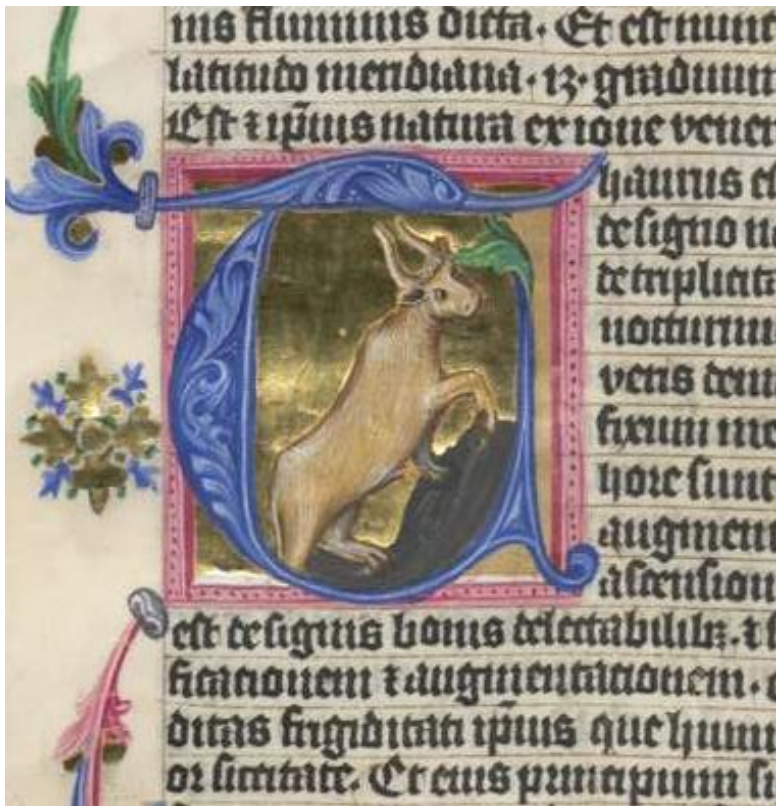 nis fluminis dicta. Et est nunc
latitudo meridiana. 12. graduum
Est ⁊ ip̄ius natura ex ioue vener
T
haurus es
de signo
de triplicita
nocturnu
veris dem
fixum me
hore sunt
augmen
ascension
est de signis bonis delectabilibꝫ. ⁊
ficationem ⁊ augmentationem.
ditas frigiditati ip̄ius que hum
or siccitate. Et eius principium